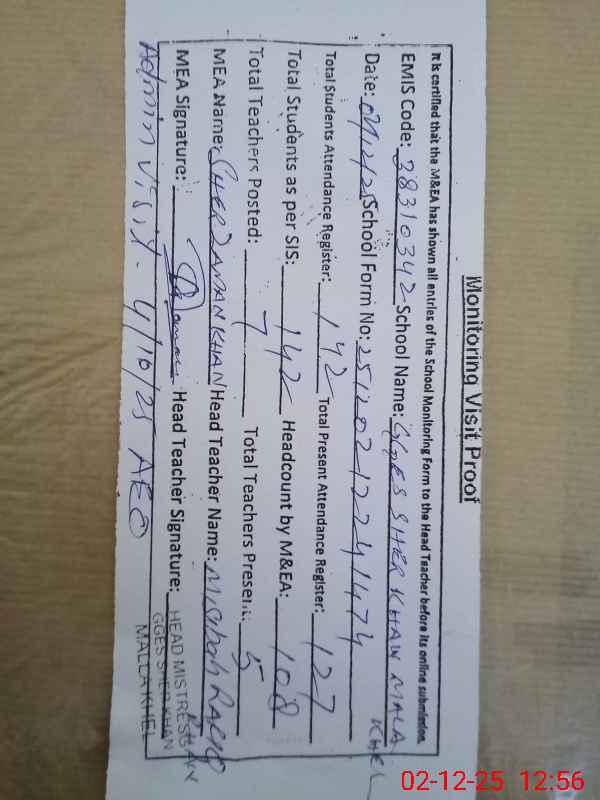 Monitoring Visit Proof
It is certified that the M&EA has shown all entries of the School Monitoring Form to the Head Teacher before its online submission.
EMIS Code: 38310342 School Name: GGES SHER KHAN MALA KHEL
Date: 02/12/25 School Form No: 25120212241474
Total Students Attendance Register: 142 Total Present Attendance Register: 127
Total Students as per SIS: 142 Headcount by M&EA: 108
Total Teachers Posted: 7 Total Teachers Present: 5
MEA Name: SHER ZAMAN KHAN Head Teacher Name: Misbah
MEA Signature: Head Teacher Signature:
HEAD MISTRESS
GGES SHER KHAN
MALLA KHEL
Admin Visit - 4/10/25 AEO
02-12-25 12:56